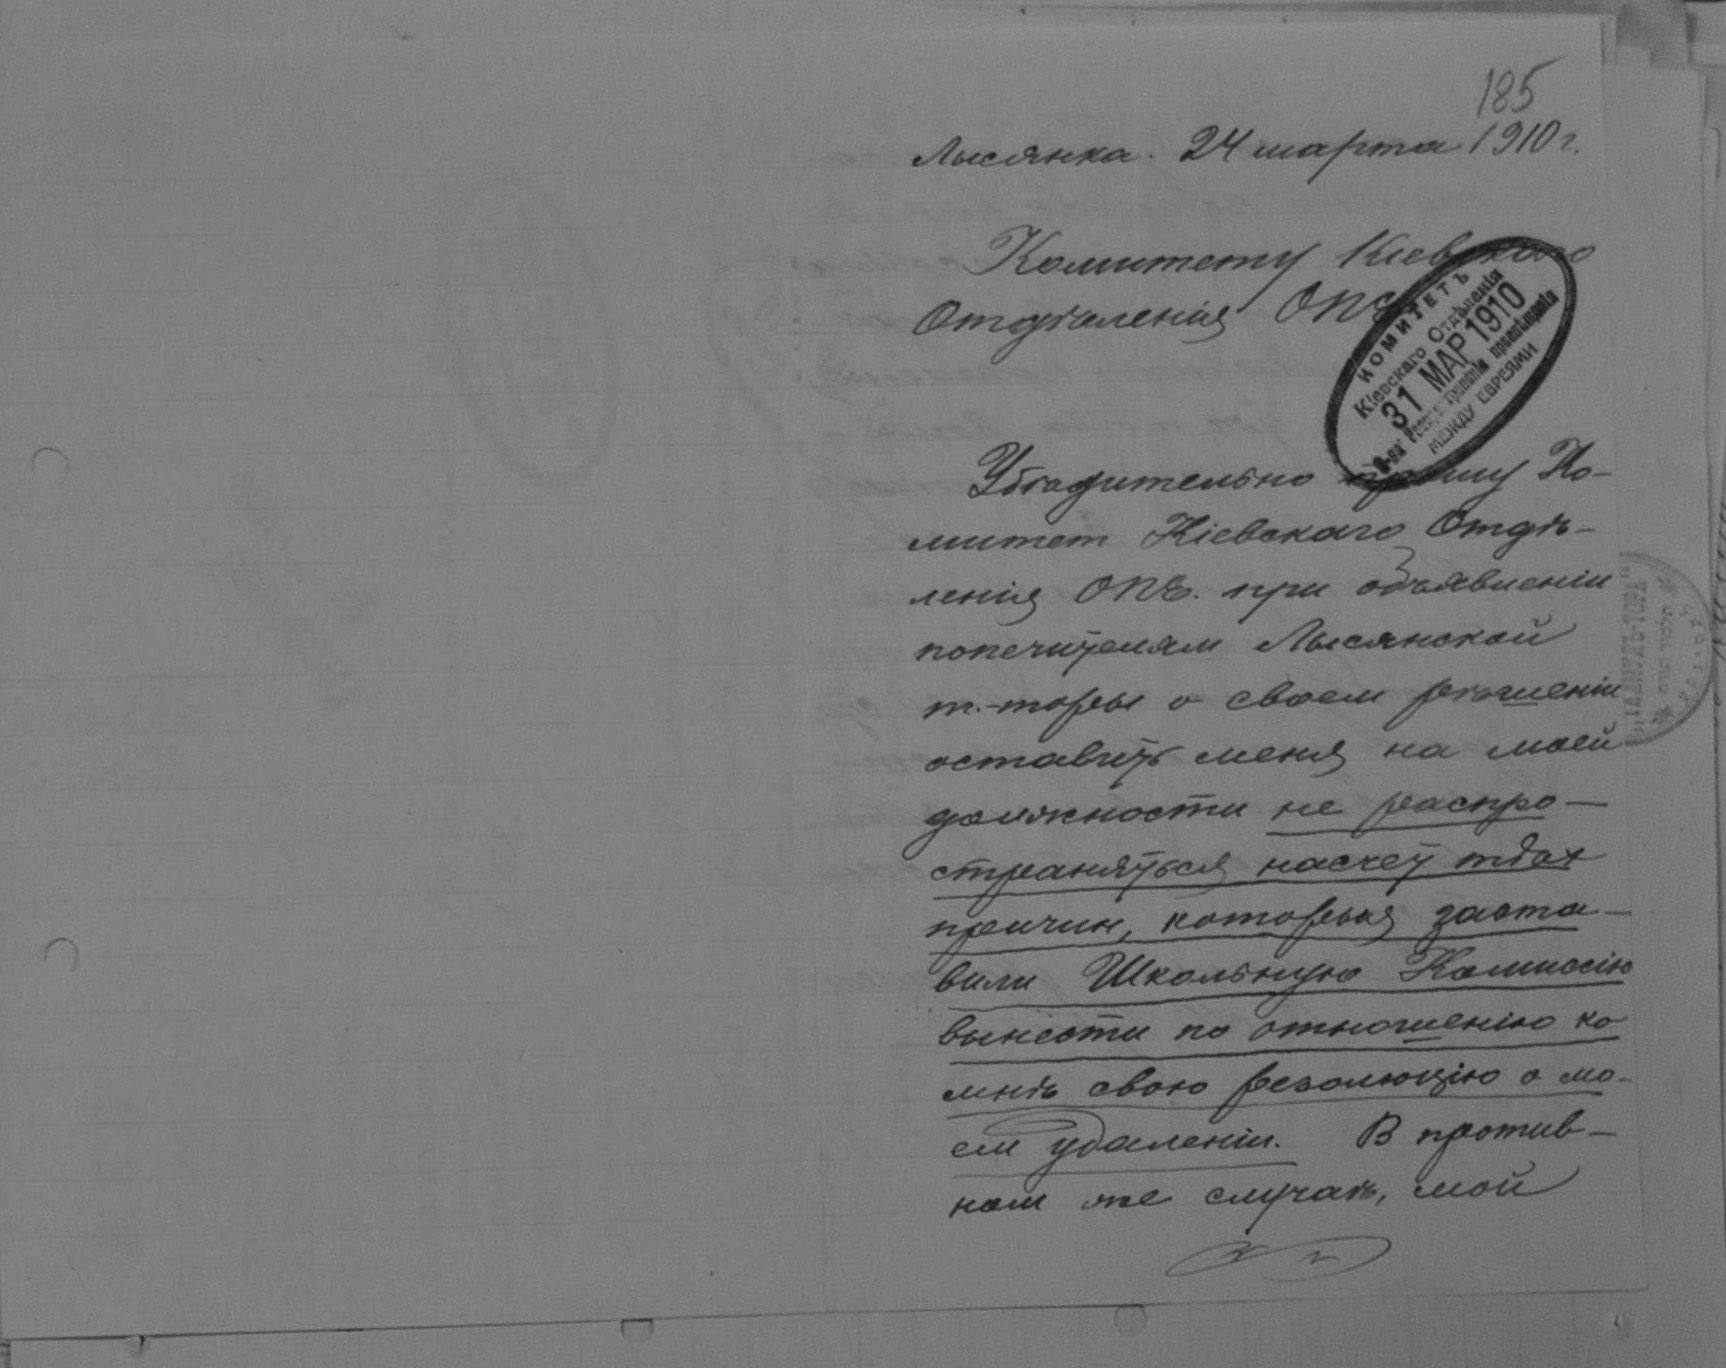 185
Лысянка. 24 марта 1910 г.
Комитету Кіевскаго
Отдѣленія ОПЕ
КОМИТЕТЪ
Кіевскаго Отдѣленія
31 МАР 1910
О-ва просвѣщенія
МЕЖДУ ЕВРЕЯМИ
Убѣдительно прошу Ко-
митет Кіевскаго Отдѣ-
ленія ОПЕ. при объявленіи
попечителям Лысянской
т.-торы о своем рѣшеніи
оставить меня на моей
должности не распро-
страняться насчет тѣх
причин, которыя заста-
вили Школьную Комиссію
вынести по отношенію ко
мнѣ свою резолюцію о мо-
ем удаленіи. В против-
ном же случаѣ, мой
"ТАЛМУДЪ-ТОРА"